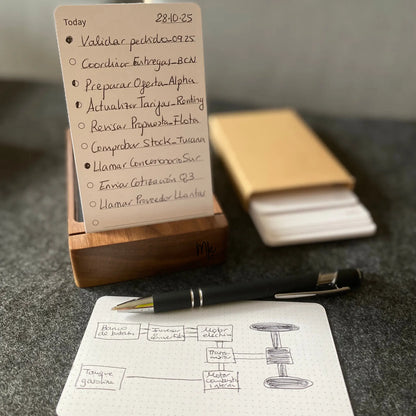 Today 28-10-25
Validar pedido_0925
Coordinar Entregas_BCN
Preparar Oferta_Alpha
Actualizar Tarifas_Renting
Revisar Propuesta_Flota
Comprobar Stock_Tucana
Llamar Concesionario Sur
Enviar Cotización Q3
Llamar Proveedor Llantas
Mk
Banco
de baterías
Inversor
Motor
eléctrico
Tanque
gasolina
Motor
interna